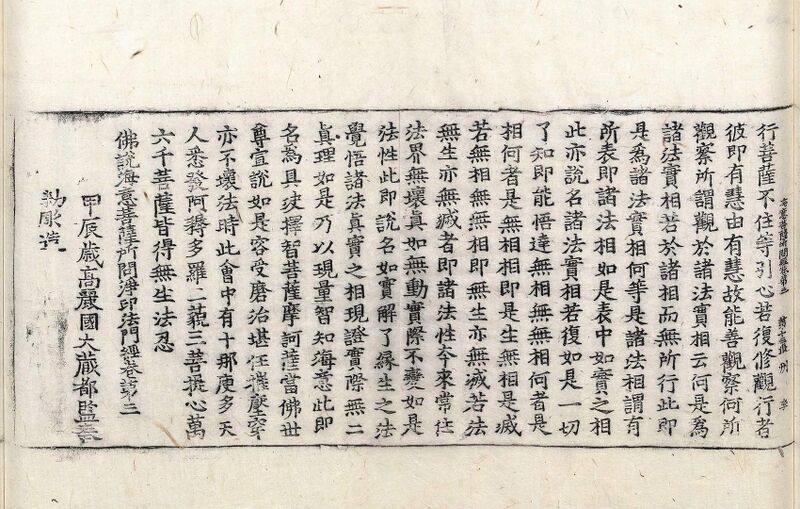 海意菩薩所問經卷第三 第十六張 刑
行菩薩不住等引心若復修觀行者
彼即有慧由有慧故能善觀察何所
觀察所謂觀於諸法實相云何是爲
諸法實相若於諸相而無所行此即
是爲諸法實相何等是諸法相謂有
所表即諸法相如是表中如實之相
此亦說名諸法實相若復如是一切
了知即能悟達無相無相何者是
相何者是無相相即是生無相是滅
若無相無無相即無生亦無滅若法
無生亦無滅者即諸法性本來常住
法界無壞眞如無動實際不變如是
法性此即說名如實解了緣生之法
覺悟諸法眞實之相現證實際無二
眞理如是乃以現量智知海意此即
名爲具決擇智菩薩摩訶薩當佛世
尊宣說如是容受磨治堪任摧壓穿
亦不壞法時此會中有十那庾多天
人悉發阿耨多羅三藐三菩提心萬
六千菩薩皆得無生法忍
佛說海意菩薩所問淨印法門經卷第三
甲辰歲高麗國大藏都監奉
勑彫造